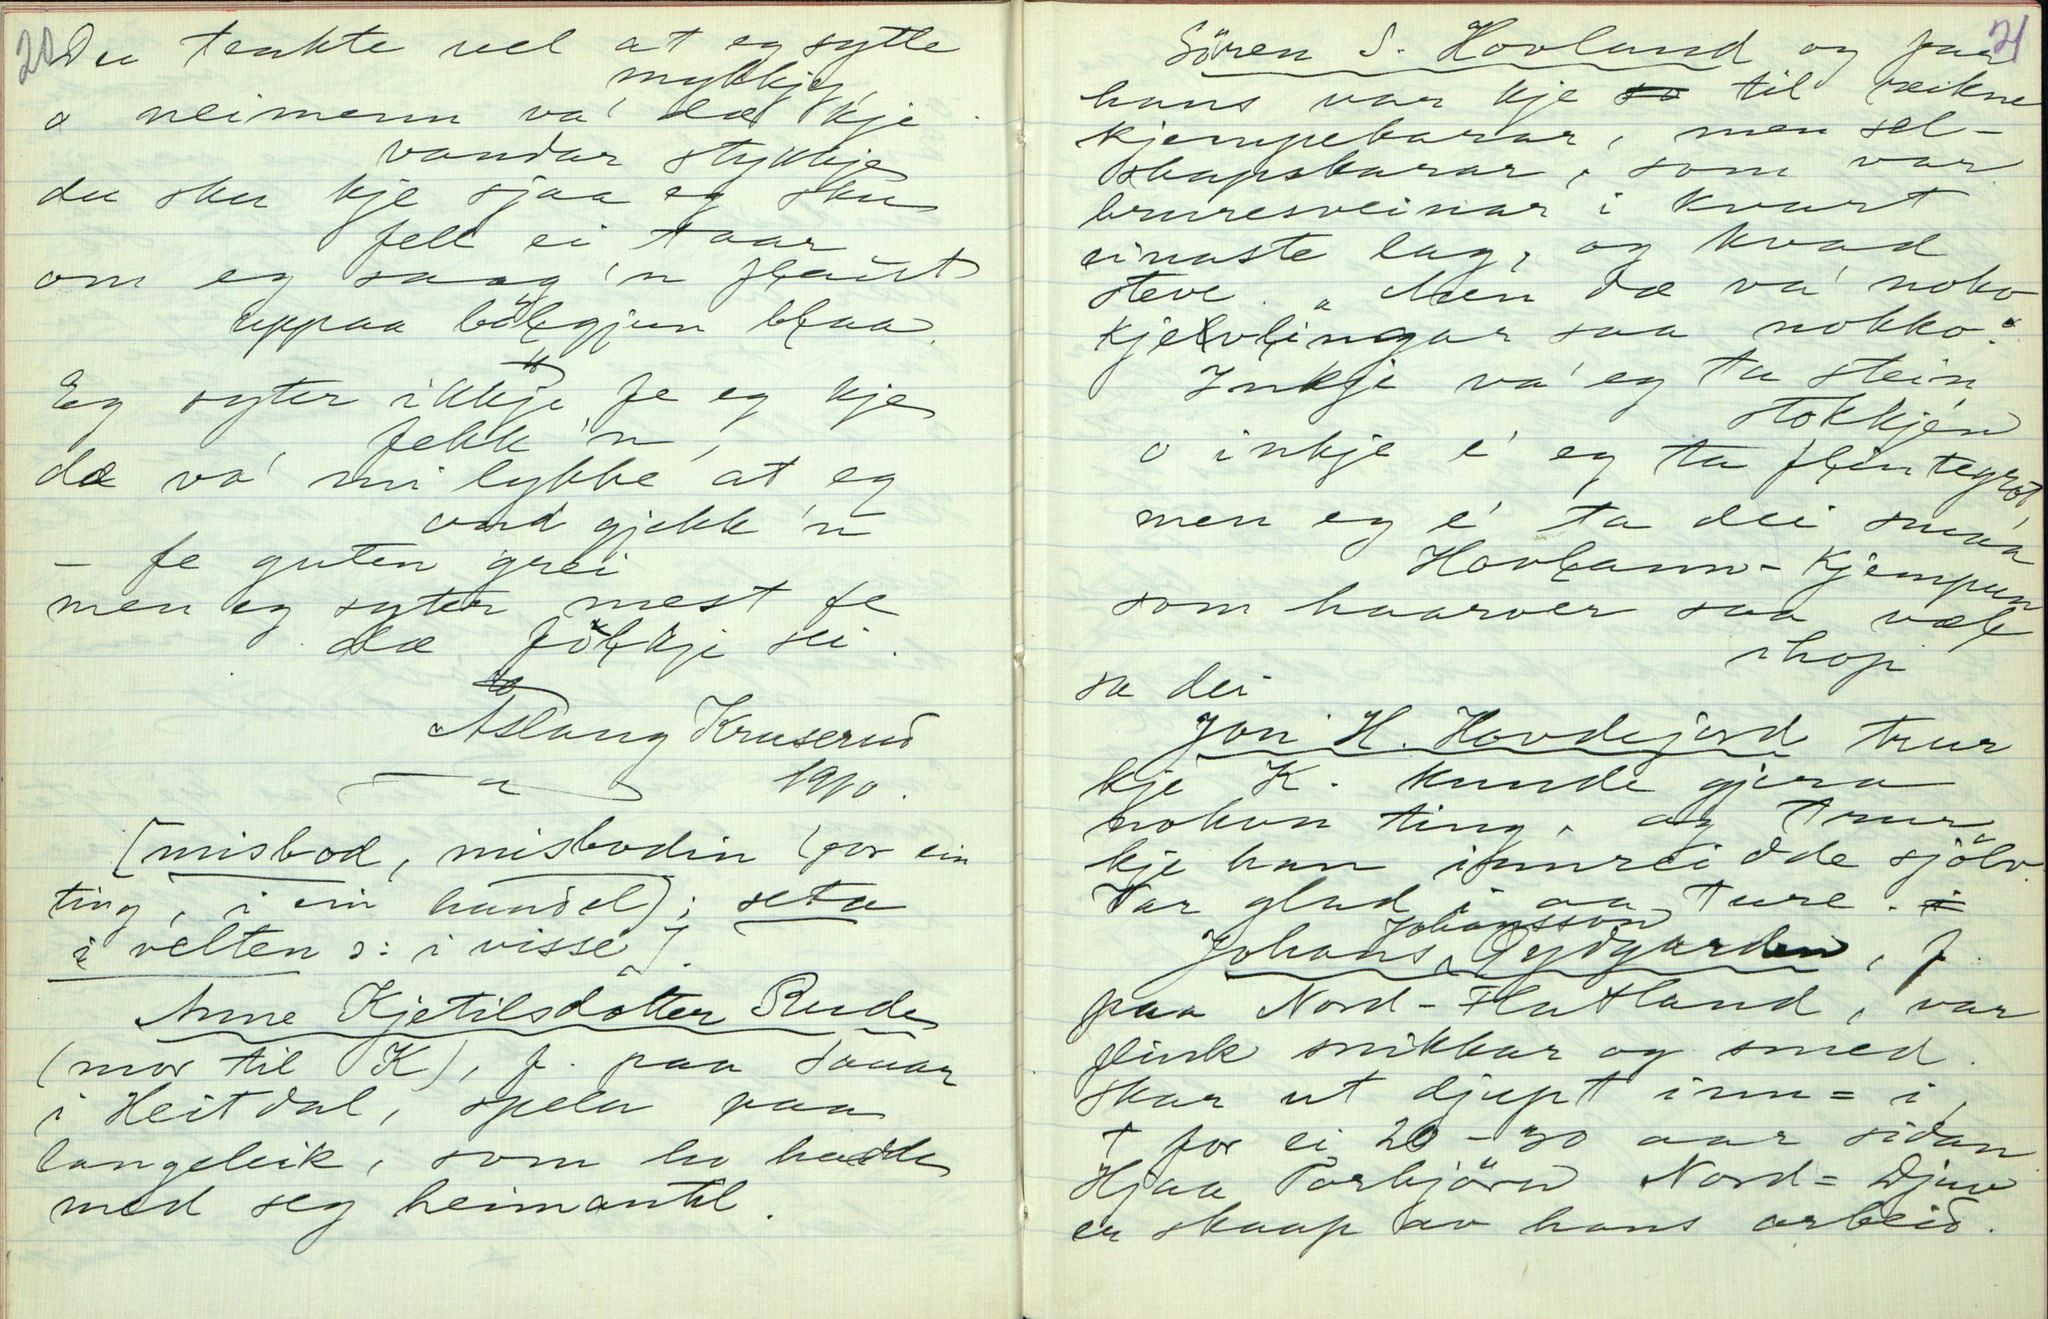 20
Du tenkte vel at eg sytte
mykkje,
o neimenn va' dæ kje
vandar stykkje
du sku kje sjaa eg sku
fell ei taar
om eg saag 'n flaut
uppaa bölgjun blaa.
Eg syter ikkje fe eg kje
fekk 'n,
dæ va' mi lykke at eg
ond gjekk 'n
- fe guten grei
men eg syter mest fe
dæ fölkje sei.
Aslaug Kruserud
1910.
[misbod, misbodin (for ein
ting, i ein handel); seta
i velten ɔ: i visse].
Anne Kjetilsdotter Rude
(mor til K), f. paa Sauar
i Heitdal, spela paa
langeleik, som ho hadde
med seg heimantil.
21
Sören S. Hovland og far
hans var kje so til reikne
kjempekarar, men sel-
skapskarar, som var
bruresveinar i kvart
einaste lag, og kvad
steve. "Men dæ va' noko
kjelvlingar saa nokko."
Inkje va' eg ta stein
stokkjen
o inkje e' eg ta flintegrot
men eg e' ta dei smaa
Hovlann-kjempun
som haarver saa væl
ihop
sa dei
Jon H. Hovdejord trur
kje K. kunde gjera
nokon ting, og trur
kje han innreidde sjölv.
Var glad i aa ture. i
Johansson
Johans Öygarden, f.
paa Nord-Flatland, var
flink snikkar og smed.
Skar ut djupt inn= i
† for ei 20-30 aar sidan
Hjaa Torbjörn Nord= Djuv
er skaap av hans arbeid.